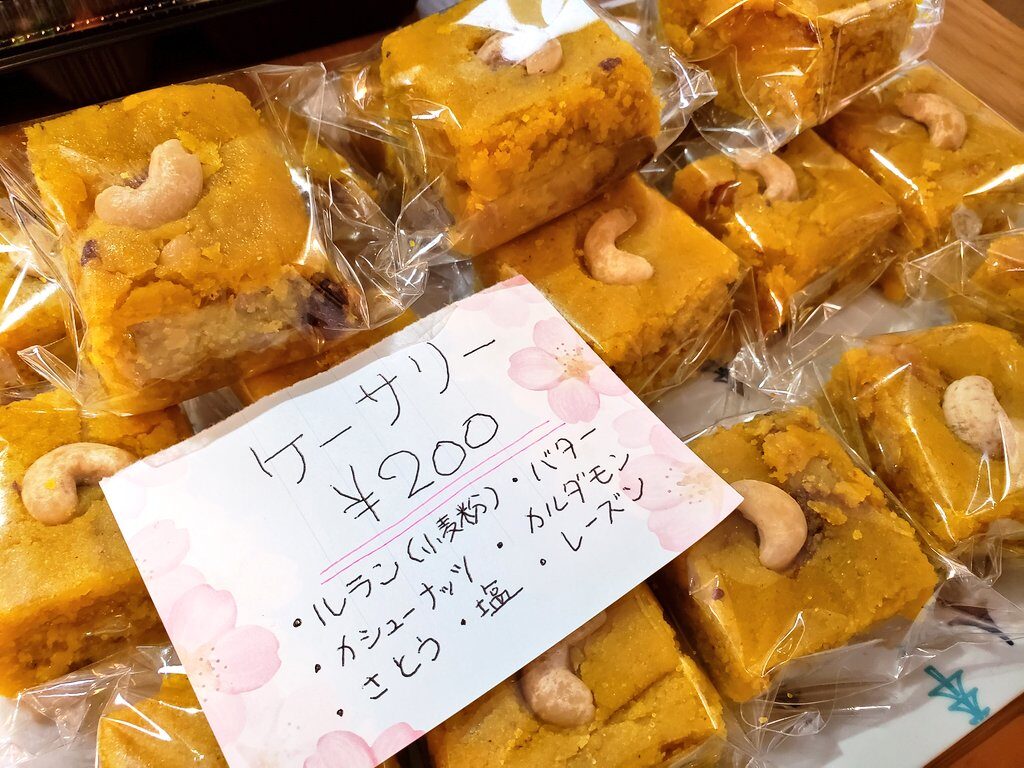 ケーサリー
¥200
・ルラン(小麦粉)・バター
・カシューナッツ・カルダモン
・さとう・塩・レーズン